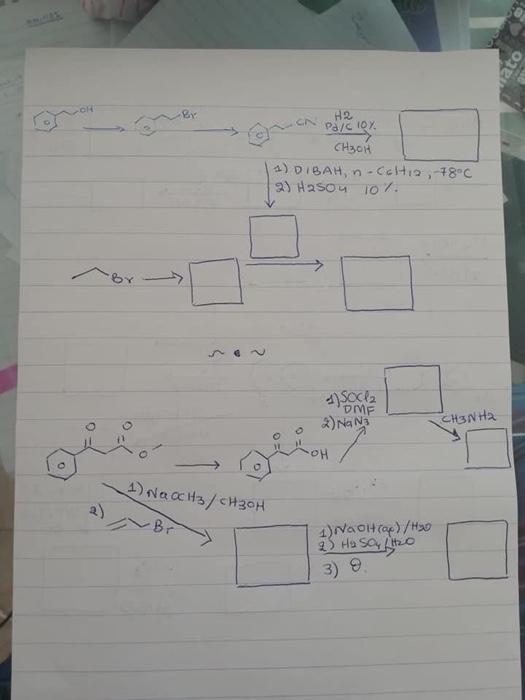 OH
Br
CN
H2
Pd/C 10%
CH3OH
1) DIBAH, n-C6H12, -78°C
2) H2SO4 10%
Br
~ • ~
1) SOCl2
DMF
2) NaN3
CH3NH2
O O
O
O O
OH
1) NaOCH3/CH3OH
2) Br
1) NaOH(aq)/H2O
2) H2SO4/H2O
3) Θ